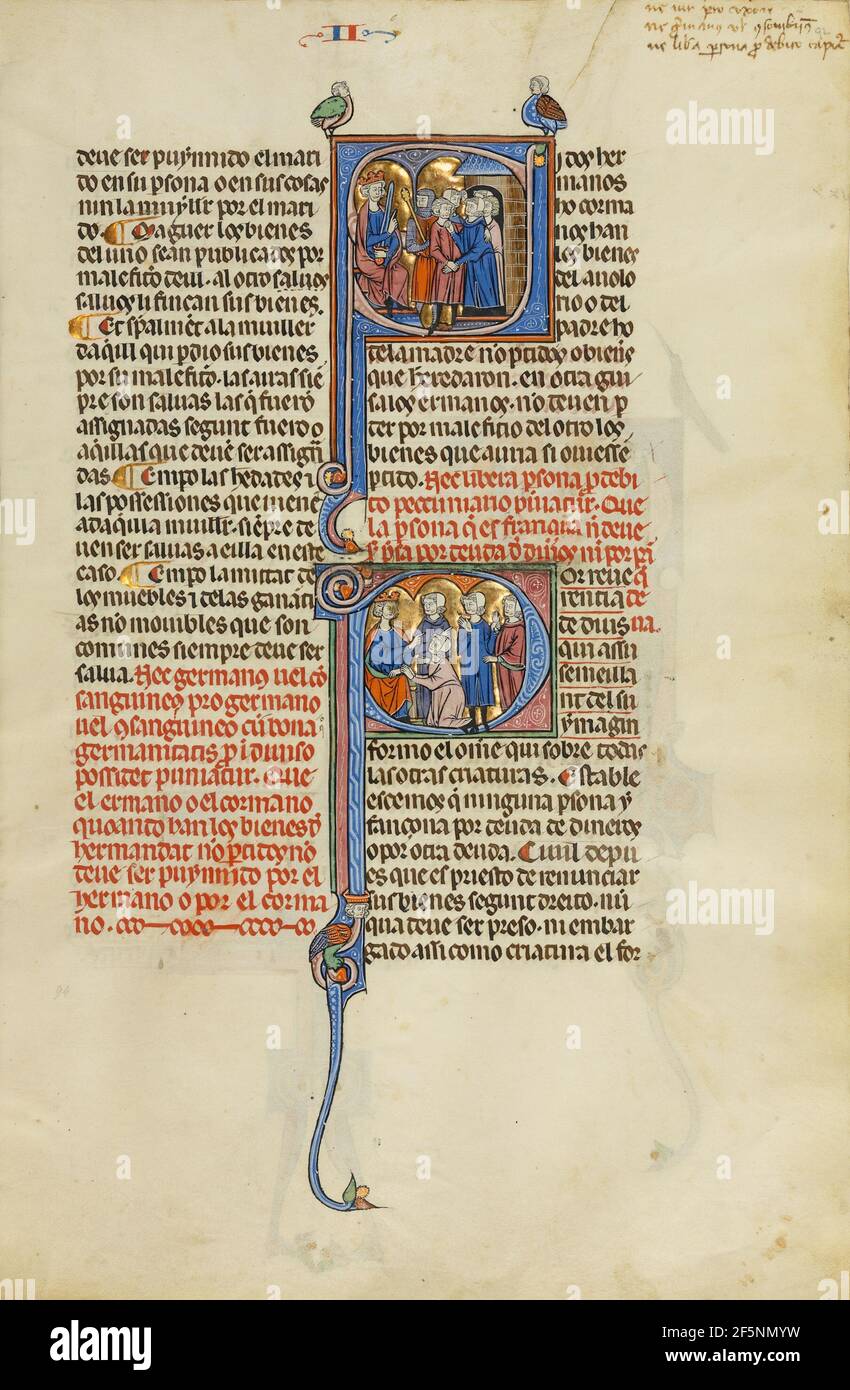 II
ne vir pro uxori
ne liba persona pro debito capiat
deue ser puynnido el mari
do en su psona o en sus cosas
nin la muyller por el mari
do. Maguer los bienes
del uno sean publicados por
malefito deill. al otro saluos
saluos li fincan sus bienes.
Et spalment a la muiller
daqill qui pdio sus bienes
por su malefito. las arras siē
pre son saluas las q̄ fuerō
assignadas segunt fuero o
aqillas que deuē ser assign̄
das. Empo las hedades ⁊
las possessiones que uienē
ad aqilla muillr. siēpre de
uen ser saluas a eilla en este
caso. Empo la mitat de
los muebles ⁊ de las ganāci
as nō mouibles que son
comunes siempre deue ser
salua. Nec germanus uel cō
sanguineus pro germano
uel ꝯsanguineo cū bona
germanitatis p̱ īdiuiso
possidet puniatur. Que
el ermano o el cormano
quoando han los bienes đ
hermandat nō ptidos nō
deue ser puynnido por el
hermano o por el corma
no.
i dos her
manos
ho corma
nos han
los bienes
del auolo
rio o del
padre ho
de la madre nō ptidos o bienes
que heredaron. en otra gui
sa los ermanos. nō deuen p
der por maleficio del otro los
bienes que auna si ouiesse
ptido. Nec libera psona p debi
to peccuniario piniatur. Que
la psona q̄ es franq̄ua ñ deue
s psa por deuda đ dīos ni por
Or reue q̄
rentia de
de diuisna.
qui a su
semeilla
nt del su
ymagin
formo el om̄e qui sobre todas
las otras criaturas. Estable
escemos q̄ ninguna psona y
fançona por deuda de dineros
o por otra deuda. Ciuil depu
es que es priesto de renunciar
sus bienes segunt dreito. nū
qua deue ser preso. ni embar
gado assi como criatura el for
96
alamy
Image ID: 2F5NMYW
www.alamy.com